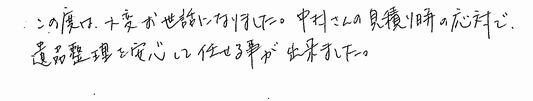 この度は、大変お世話になりました。中村さんの見積り時の応対で、
遺品整理を安心して任せる事が出来ました。